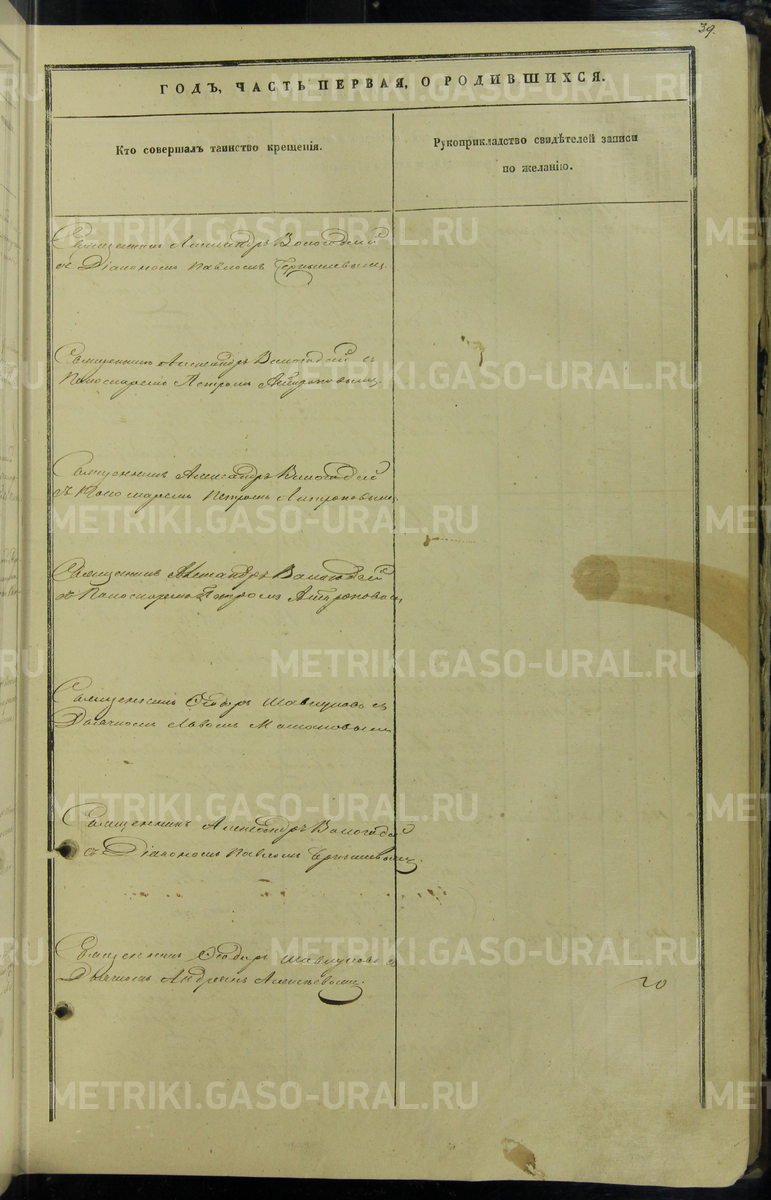 39.
ГОДЪ, ЧАСТЬ ПЕРВАЯ, О РОДИВШИХСЯ.
Кто совершалъ таинство крещенія.
Рукоприкладство свидѣтелей записи
по желанію.
Священникъ Александръ Вологодскій
съ Діакономъ Павломъ Чернышевымъ.
Священникъ Александръ Вологодскій съ
Пономаремъ Петромъ Антроповымъ.
Священникъ Александръ Вологодскій
съ Пономаремъ Петромъ Антроповымъ
Священникъ Александръ Вологодскій
съ Пономаремъ Петромъ Антроповымъ
Священникъ Ѳеодоръ Шавкуновъ съ
Дьячкомъ Львомъ
Священникъ Александръ Вологодскій
съ Діакономъ Павломъ Чернышевымъ.
Священникъ Ѳеодоръ Шавкуновъ съ
Дьячкомъ Андреемъ Алексѣевымъ.
20
METRIKI.GASO-URAL.RU